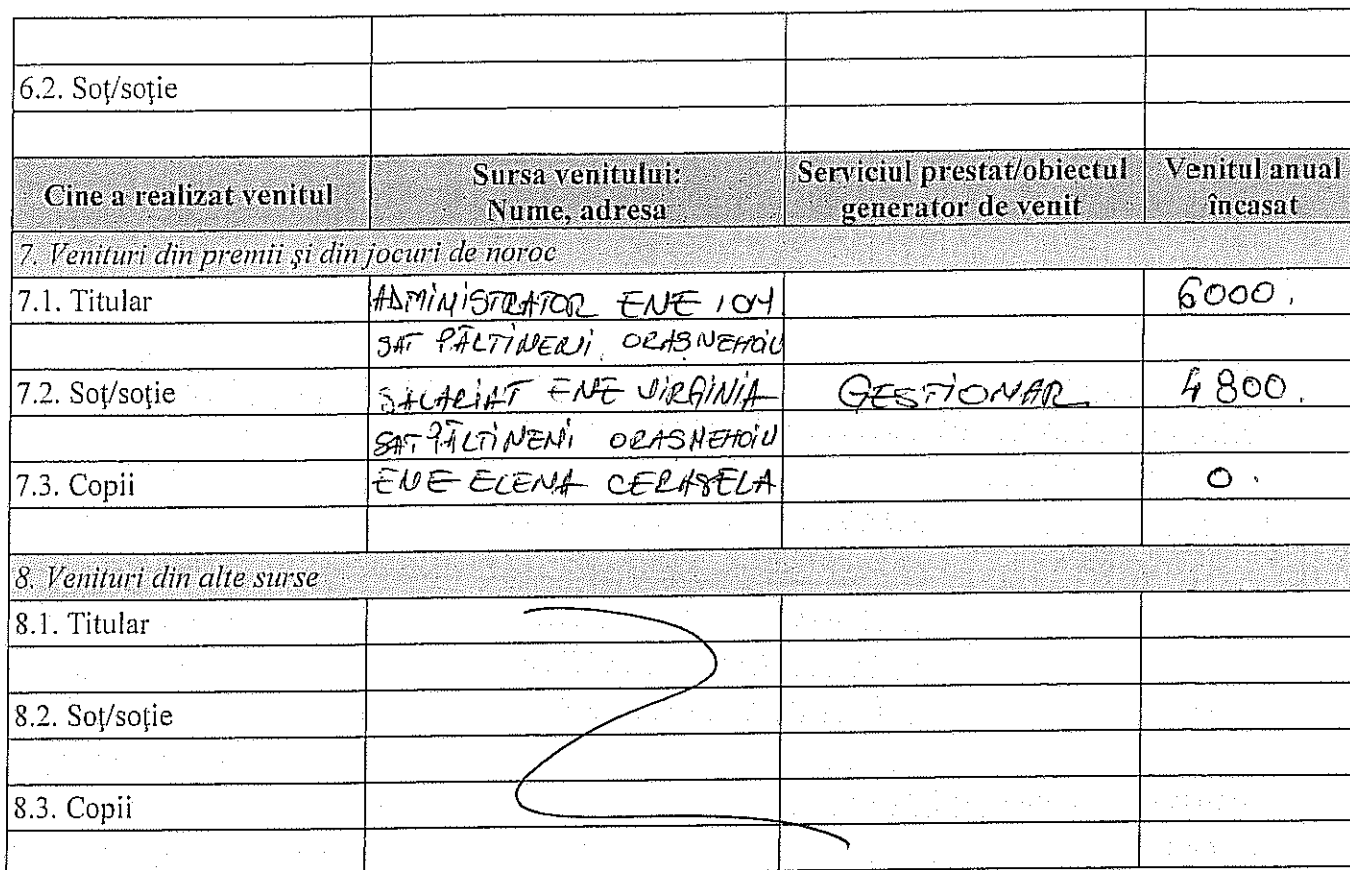 6.2. Soț/soție
Cine a realizat venitul Sursa venitului: Nume, adresa Serviciul prestat/obiectul generator de venit Venitul anual încasat
7. Venituri din premii și din jocuri de noroc
7.1. Titular ADMINISTRATOR ENE ION 6000.
SAT PĂLTINENI ORAS NEHOIU
7.2. Soț/soție SALARIAT ENE VIRGINIA GESTIONAR 4800.
SAT PĂLTINENI ORAS NEHOIU
7.3. Copii ENE ELENA CERASELA 0.
8. Venituri din alte surse
8.1. Titular
8.2. Soț/soție
8.3. Copii